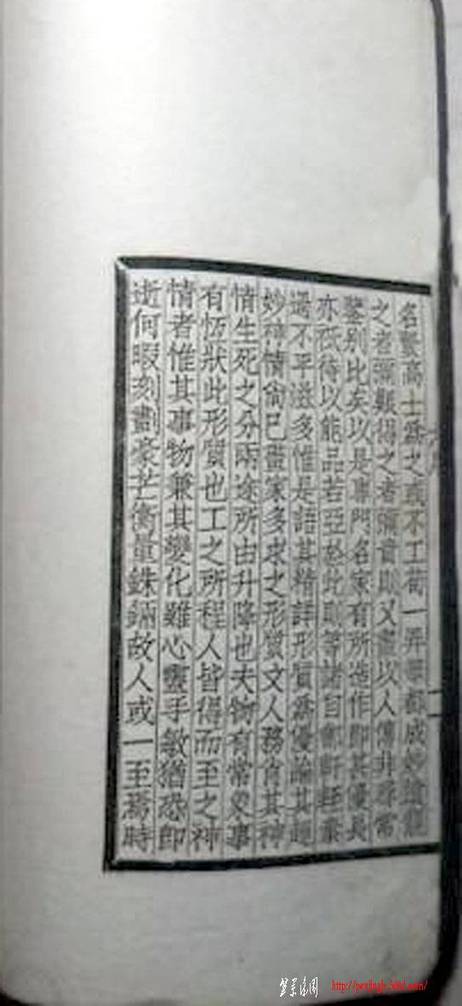 名高士為之或不工苟一弄筆輒成妙繪
之者彌艱得之者彌貴則又畫以人傳非尋常
鑒別比矣以是專門名家有所造作卽甚優長
亦祇待以能品若亞於此則等諸自鄶軒輊
過不平滋多惟是語其精詳形質為優論其超
妙神情尙已畫家多求之形質文人務肖其神
情生死之分兩途所由升降也夫物有常事
有恆狀此形質也工之所程人皆得而至之神
情者惟其事物兼其變化雖心靈手敏猶恐卽
逝何暇刻劃豪芒衡量銖錙故人或一至焉時